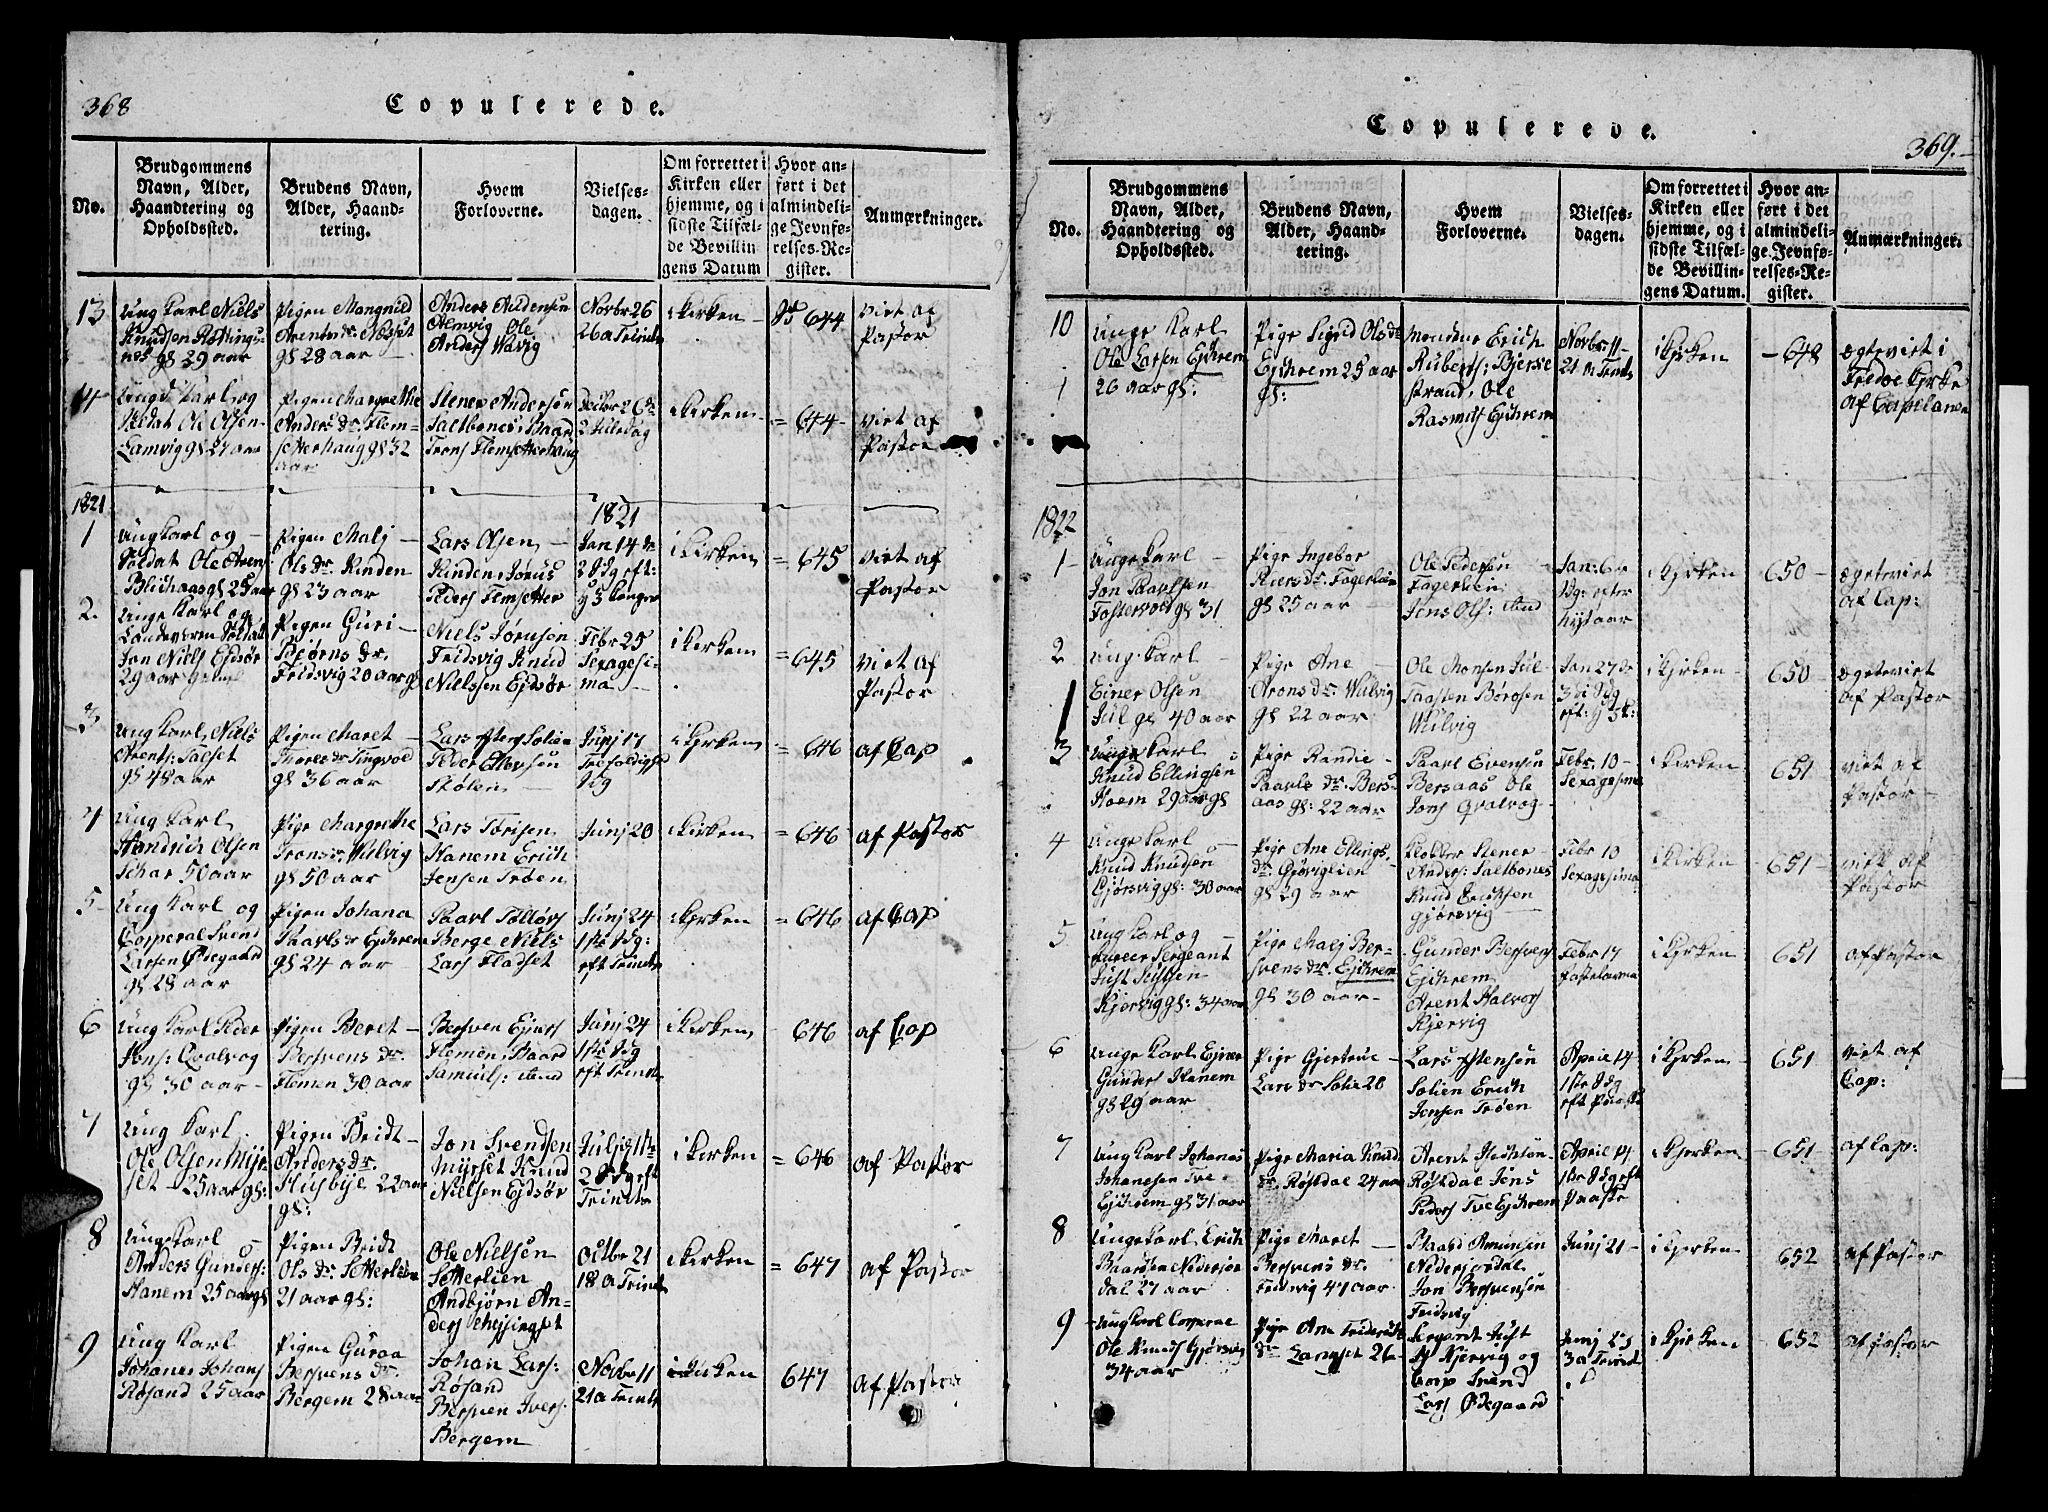 368
Copulerede.
No.
Brudgommens
Navn, Alder,
Haandtering og
Opholdssted.
Brudens Navn,
Alder, Haand-
tering.
Hvem
Forloverne.
Vielses-
dagen.
Om forrettet i
Kirken eller
hjemme, og i
sidste Tilfæl-
de Bevillin-
gens Datum
Hvor an-
ført i det
almindeli-
ge Jevnfø-
relses-Re-
gister.
Anmærkninger.
13
Ung Karl Niels
Knudsen
29 aar
Pigen Mangnild
Arents dr. Næsset
28 aar
Anders
Ole
Anders
Novbr 26
26 a Trinit
i Kirken
644
viet af
Pastor
14
Karl og
Soldat Ole Olsen
Lamvig gl 27 aar
Pigen Margrethe
Anders dr. Flem-
setterhaug gl 32
aar
Stener Andersøn
Saltbones, Baar
Trons Flemsetterhaug
Decbr 26
2 Juledag
i Kirken
= 644
viet af
Pastor
1821
1821
1
Ung Karl og
Soldat Ole
25 aar
Pigen Malj
Ols dr. Rinden
gl 23 aar
Lars Olsen
Rinden, Jørus
Peders Flemsetter
Jan 14
2 Sdg eft:
i Kirken
= 645
viet af
Pastor
2.
Unge Karl og
Soldat
Jon Niels Ejdsør
29 aar
Pigen Guri
Bjørns dr.
Fridsvig 20 aar gl
Niels Jørusen
Fridsvig Knud
Nielssen Ejdsør
Febr 25
Sexagesi-
ma
i Kirken
= 645
viet af
Pastor
3
Ung Karl, Niels
Arents: Salset
gl 48 aar
Pigen Maret
Thores dr Tingvold
gl 36 aar
Lars Solien
Peder
Skølen
Junj 17
Trefoldigheds
Sdg
i Kirken
= 646
af Cap
4
Ung Karl
Hendrich Olsen
50 aar
Pige Margrethe
Trons dr. Wulvig
gl 50 aar
Lars Torisen
Hanem Erich
Jensen Trøen
Junj 20
i Kirken
= 646
af Pastor
5
Ung Karl og
Corperal Svend
Larsen Ødegaard
gl 28 aar
Pigen Johana
Paarls dr Ejdhrem
gl 24 aar
Paarl
Berge Niels
Lars Fladset
Junj 24
1ste Sdg:
eft Trinit
i Kirken
= 646
af Cap
6
Ung Karl Peder
Jons: Qvalvog
gl 30 aar
Pigen Beret
Bersvens dr.
Flemen 30 aar
Bersven Ejners
Flemen, Baard
Samuels:
Junj 24
1ste Sdg
eft Trinit
i Kirken
646
af Cap
7
Ung Karl
Ole Olsen Myr-
set 25 aar gl:
Pigen Bridt
Anders dr.
Husbye 22 aar
gl:
Jon Svendsen
Myrset Knud
Nielsen Ejdsør
Julj 1ste
2 Sdg eft
Trinit
i Kirken
= 646
af Pastor
8
Unge Karl
Anders Gunders:
Hanem 25 aar gl
Pigen Bridt
Ols dr Setterlien
21 aar gl:
Ole Nielsen
Setterlien
Andbjørn An-
ders
Octbr 21
18 a Trinit
i Kirken
= 647
af Pastor
9
Ung Karl
Johanes Johans
Røsand 25 aar
Pigen Guroa
Bersvens dr
Bergem 28 aar
Johan Lars:
Røsand
Bersven Ivers:
Bergem
Novbr 11
21 a Trinit
i Kirken
647
af Pastor
Copulerede.
369.
No.
Brudgommens
Navn, Alder,
Haandtering og
Opholdssted.
Brudens Navn,
Alder, Haand-
tering.
Hvem
Forloverne.
Vielses-
dagen.
Om forrettet i
Kirken eller
hjemme, og i
sidste Tilfæl-
de Bevillin-
gens Datum.
Hvor an-
ført i det
almindeli-
ge Jevnfø-
relses-Re-
gister.
Anmærkninger.
10
Unge Karl
Ole Larsen Ejdhrem
26 aar gl:
Pige Sigrid Ols dr
Ejdhrem 25 aar
gl:
Erich
Ruberts: Bjerke
strand, Ole
Rasmus Ejdhrem
Novbr 11
21 a Trinit
i Kirken
648
ægteviet i
Fredøe Kirke
af Capelanen
1822
1
Unge Karl
Jon Paarlsen
gl 31
Pige Ingebor
Fagerlein
gl 25 aar
Ole Pedersen
Fagerlein
Jens Ols:
Jan: 6
Sdg: efter
Nytaar
i Kirken
650
ægteviet
af Cap:
2
Ung Karl
Einer Olsen
Jul gl 40 aar
Pige Ane
Arons dr. Wulvig
gl 22 aar
Ole Monsen Jul
Wulvig
Jan 27
3 Sdg
i Kirken
650
ægteviet
af Pastor
3
Unge Karl
Knud Ellingsen
Hoem 29 aar gl
Pige Randie
Paarls dr. Bers-
aas gl: 22 aar
Paarl Evensen
Bersaas Ole
Jons Qvalvog
Febr: 10
Sexagesima
i Kirken
651
viet af
Pastor
4
Unge Karl
Knud Knudsen
Gjørsvig gl: 30 aar
Pige Ane Ellings
dr.
gl 29 aar
Klokker Stener
Anders: Saltbones
Knud Ericksen
Gjørsvig
Febr 10
Sexagesima
i Kirken
651
viet af
Pastor
5
Ung Karl og
Fureer Sergeant
Just Justsen
Kjervig gl: 34 aar
Pige Malj Ber-
svens dr. Ejdhrem
gl 30 aar
Gunder Bersvens
Ejdhrem
Arent Halvors
Kjervig
Febr 17
Fastelavn
i Kirken
651
af Pastor
6
Unge Karl Ejner
Gunders Hanem
gl 29 aar
Pige Gjertrue
Lars dr Solie 20
Lars
Solien Erich
Jensen Trøen
April 14
1ste Sdg
eft Paaske
i Kirken
651
viet af
Cap:
7
Ung Karl Johanes
Johanesen Tve-
Ejdhrem gl 31 aar
Pige Maria Knuds
dr. Røstdal 24 aar
Arent
Røstdal Jens
Peders Tve Ejdhrem
April 14
1ste Sdg eft
Paaske
i Kirken
651
af Cap:
8
Unge Karl Erich
Baardsen Nedersjør
dal 27 aar
Pige Maret
Bersvens dr.
Fridsvig 47 aar
Baard Amunsen
Nedersjordal
Jon Bersvensen
Fridsvig
Junj 21
i Kirken
652
af Pastor
9
Ung Karl Corperal
Ole Knuds Gjørsvig
34 aar
Pige Ane Friderich
dr Langset 26
Sergeant Just
Kjervig og
Corp Svend
Lars Ødegaard
Junj 23
3 a Trinit
i Kirken
652
af Pastor